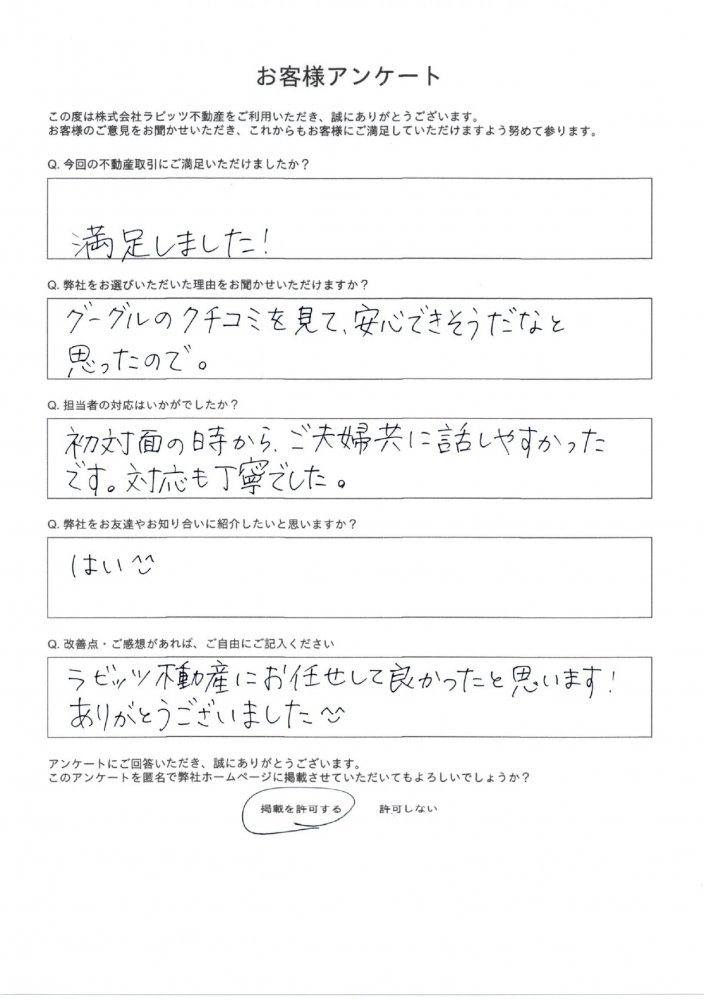 お客様アンケート
この度は株式会社ラビッツ不動産をご利用いただき、誠にありがとうございます。
お客様のご意見をお聞かせいただき、これからもお客様にご満足していただけますよう努めて参ります。
Q. 今回の不動産取引にご満足いただけましたか？
満足しました！
Q. 弊社をお選びいただいた理由をお聞かせいただけますか？
グーグルのクチコミを見て、安心できそうだなと
思ったので。
Q. 担当者の対応はいかがでしたか？
初対面の時から、ご夫婦共に話しやすかった
です。対応も丁寧でした。
Q. 弊社をお友達やお知り合いに紹介したいと思いますか？
はい^^
Q. 改善点・ご感想があれば、ご自由にご記入ください
ラビッツ不動産にお任せして良かったと思います！
ありがとうございました
アンケートにご回答いただき、誠にありがとうございます。
このアンケートを匿名で弊社ホームページに掲載させていただいてもよろしいでしょうか？
掲載を許可する 許可しない